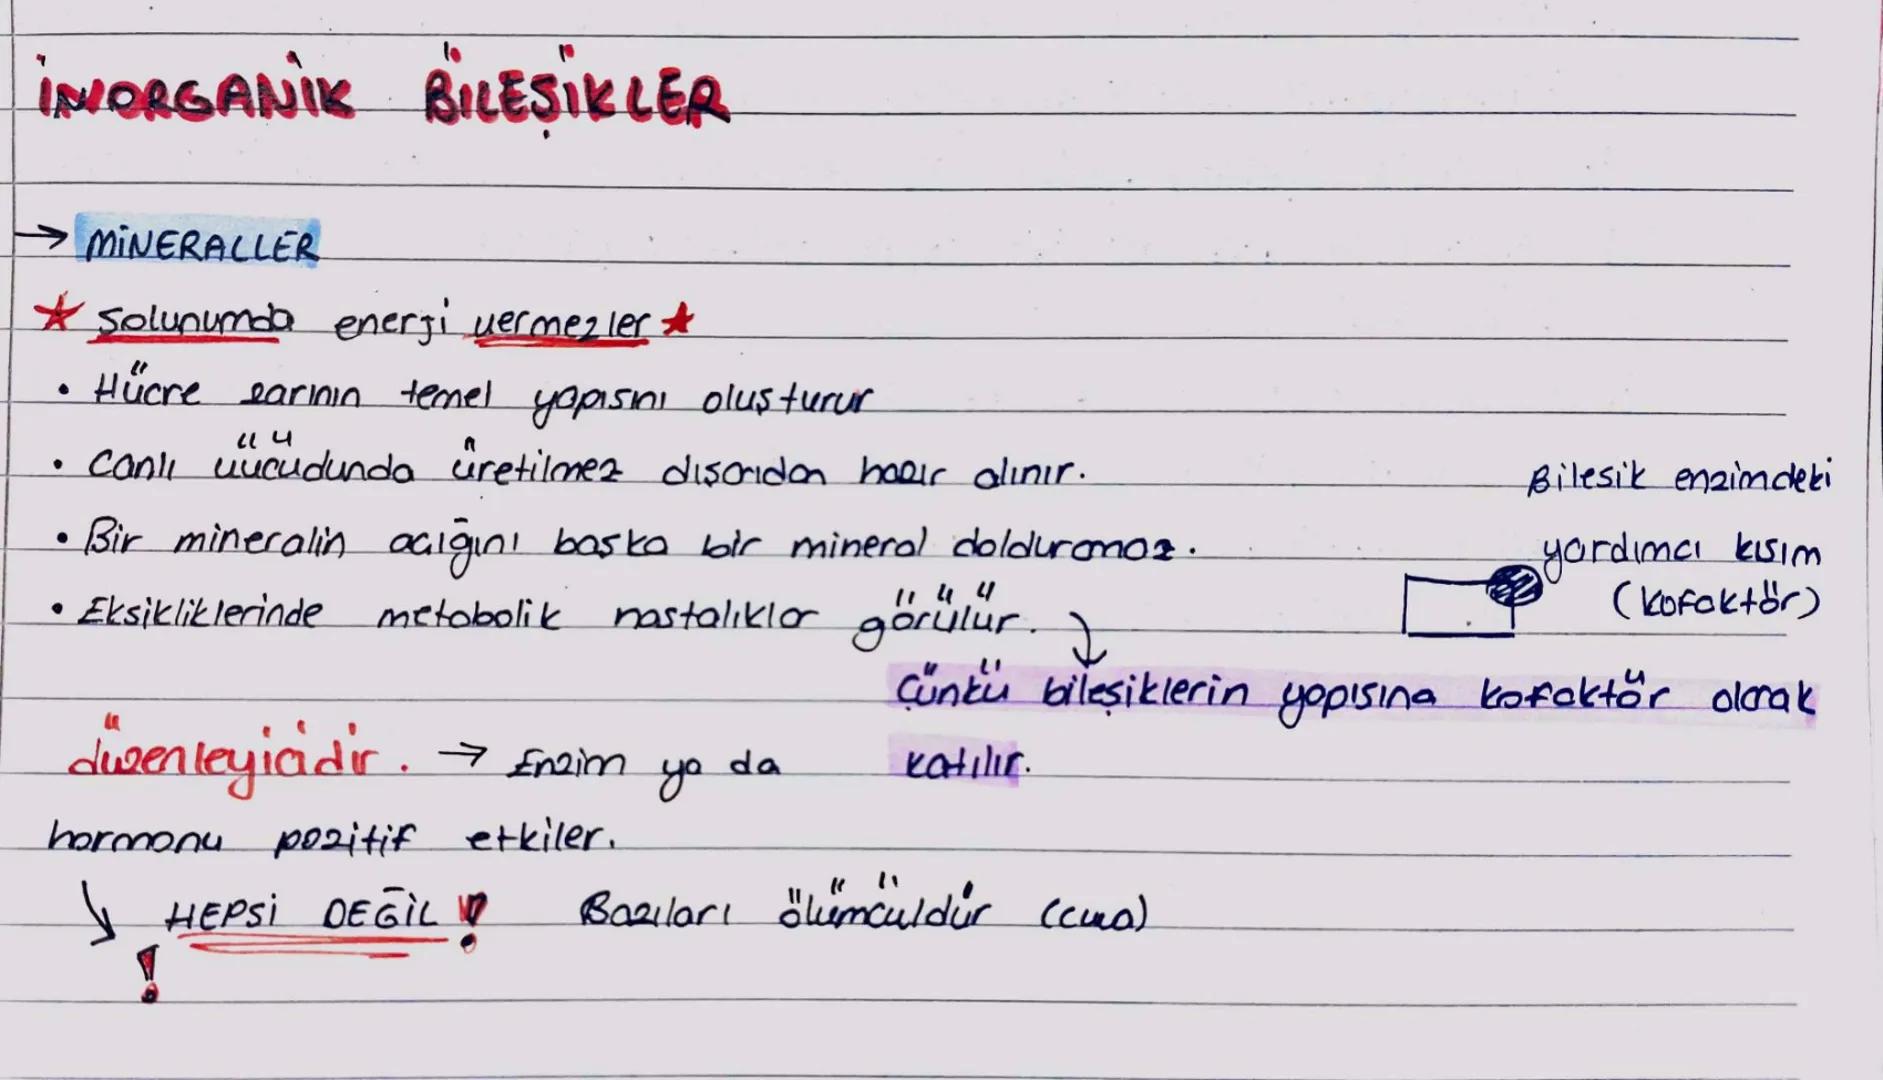 İNORGANİK BİLEŞİKLER
→ MİNERALLER
★ Solunumda enerji vermezler ★
• Hücre zarının temel yapısnı oluşturur
• Canlı vücudunda üretilmez dışarıdan hazır alınır.
• Bir mineralin açığını başka bir mineral dolduramaz.
• Eksikliklerinde metabolik hastalıklar görülür.
Çünkü bileşiklerin yapısına kofaktör olarak
katılır.
Bilesik enzimdeki
yardımcı kısım
(kofaktör)
düzenleyicidir. → Enzim ya da
hormonu pozitif etkiler.
↘ HEPSİ DEĞİL! Bazıları ölümcüldür (cıva)
!